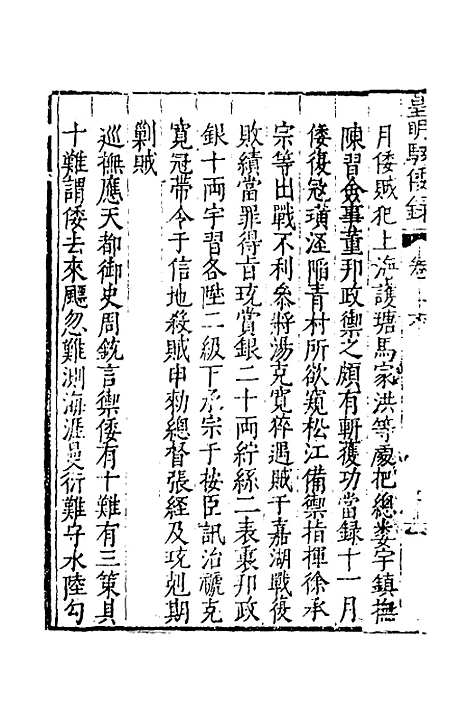 皇明馭倭錄 卷
月倭賊犯上海護塘馬家洪等處把總婁宇鎮撫
陳習僉事董邦政禦之頗有斬獲功當録十一月
倭復冦璜涇陷青村所欲窺松江備禦指揮徐承
宗等出戰不利叅將湯克寛猝遇賊于嘉湖戰復
敗績當罪得旨琉賞銀二十兩紵絲二表裏邦政
銀十兩宇習各陞二級下承宗于按臣訊治褫克
寛冠帶令于信地殺賊申勑總督張經及琉剋期
剿賊
巡撫應天都御史周珫言禦倭有十難有三策其
十難謂倭去來飈忽難測海涯曼衍難守水陸勾